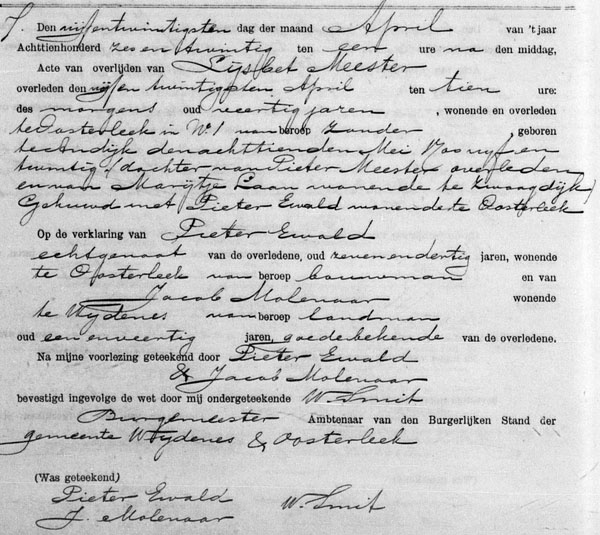 7. Den vijfentwintigsten dag der maand April van 't jaar
Achttienhonderd zes en twintig ten een ure na den middag,
Acte van overlijden van Lijsbet Meester
overleden den vijfen twintigsten April ten tien ure:
des morgens oud veertig jaren, wonende en overleden
te Oosterleek in No. 1 van beroep zonder, geboren
te Andijk den achttienden Mei
twintig (dochter van Pieter Meester overleden
en van Marijtje Laan wonende te Zwaagdijk)
Gehuwd met Pieter Ewald wonende te Oosterleek
Op de verklaring van Pieter Ewald
echtgenoot van de overledene, oud zeven en dertig jaren, wonende
te Oosterleek van beroep bouwman en van
Jacob Molenaar wonende
te Wydenes van beroep landman
oud een en veertig jaren, goede bekende van de overledene.
Na mijne voorlezing geteekend door Pieter Ewald
& Jacob Molenaar
bevestigd ingevolge de wet door mij ondergeteekende W. Smit
Burgemeester Ambtenaar van den Burgerlijken Stand der
gemeente Wydenes & Oosterleek
(Was geteekend)
Pieter Ewald W. Smit
J. Molenaar